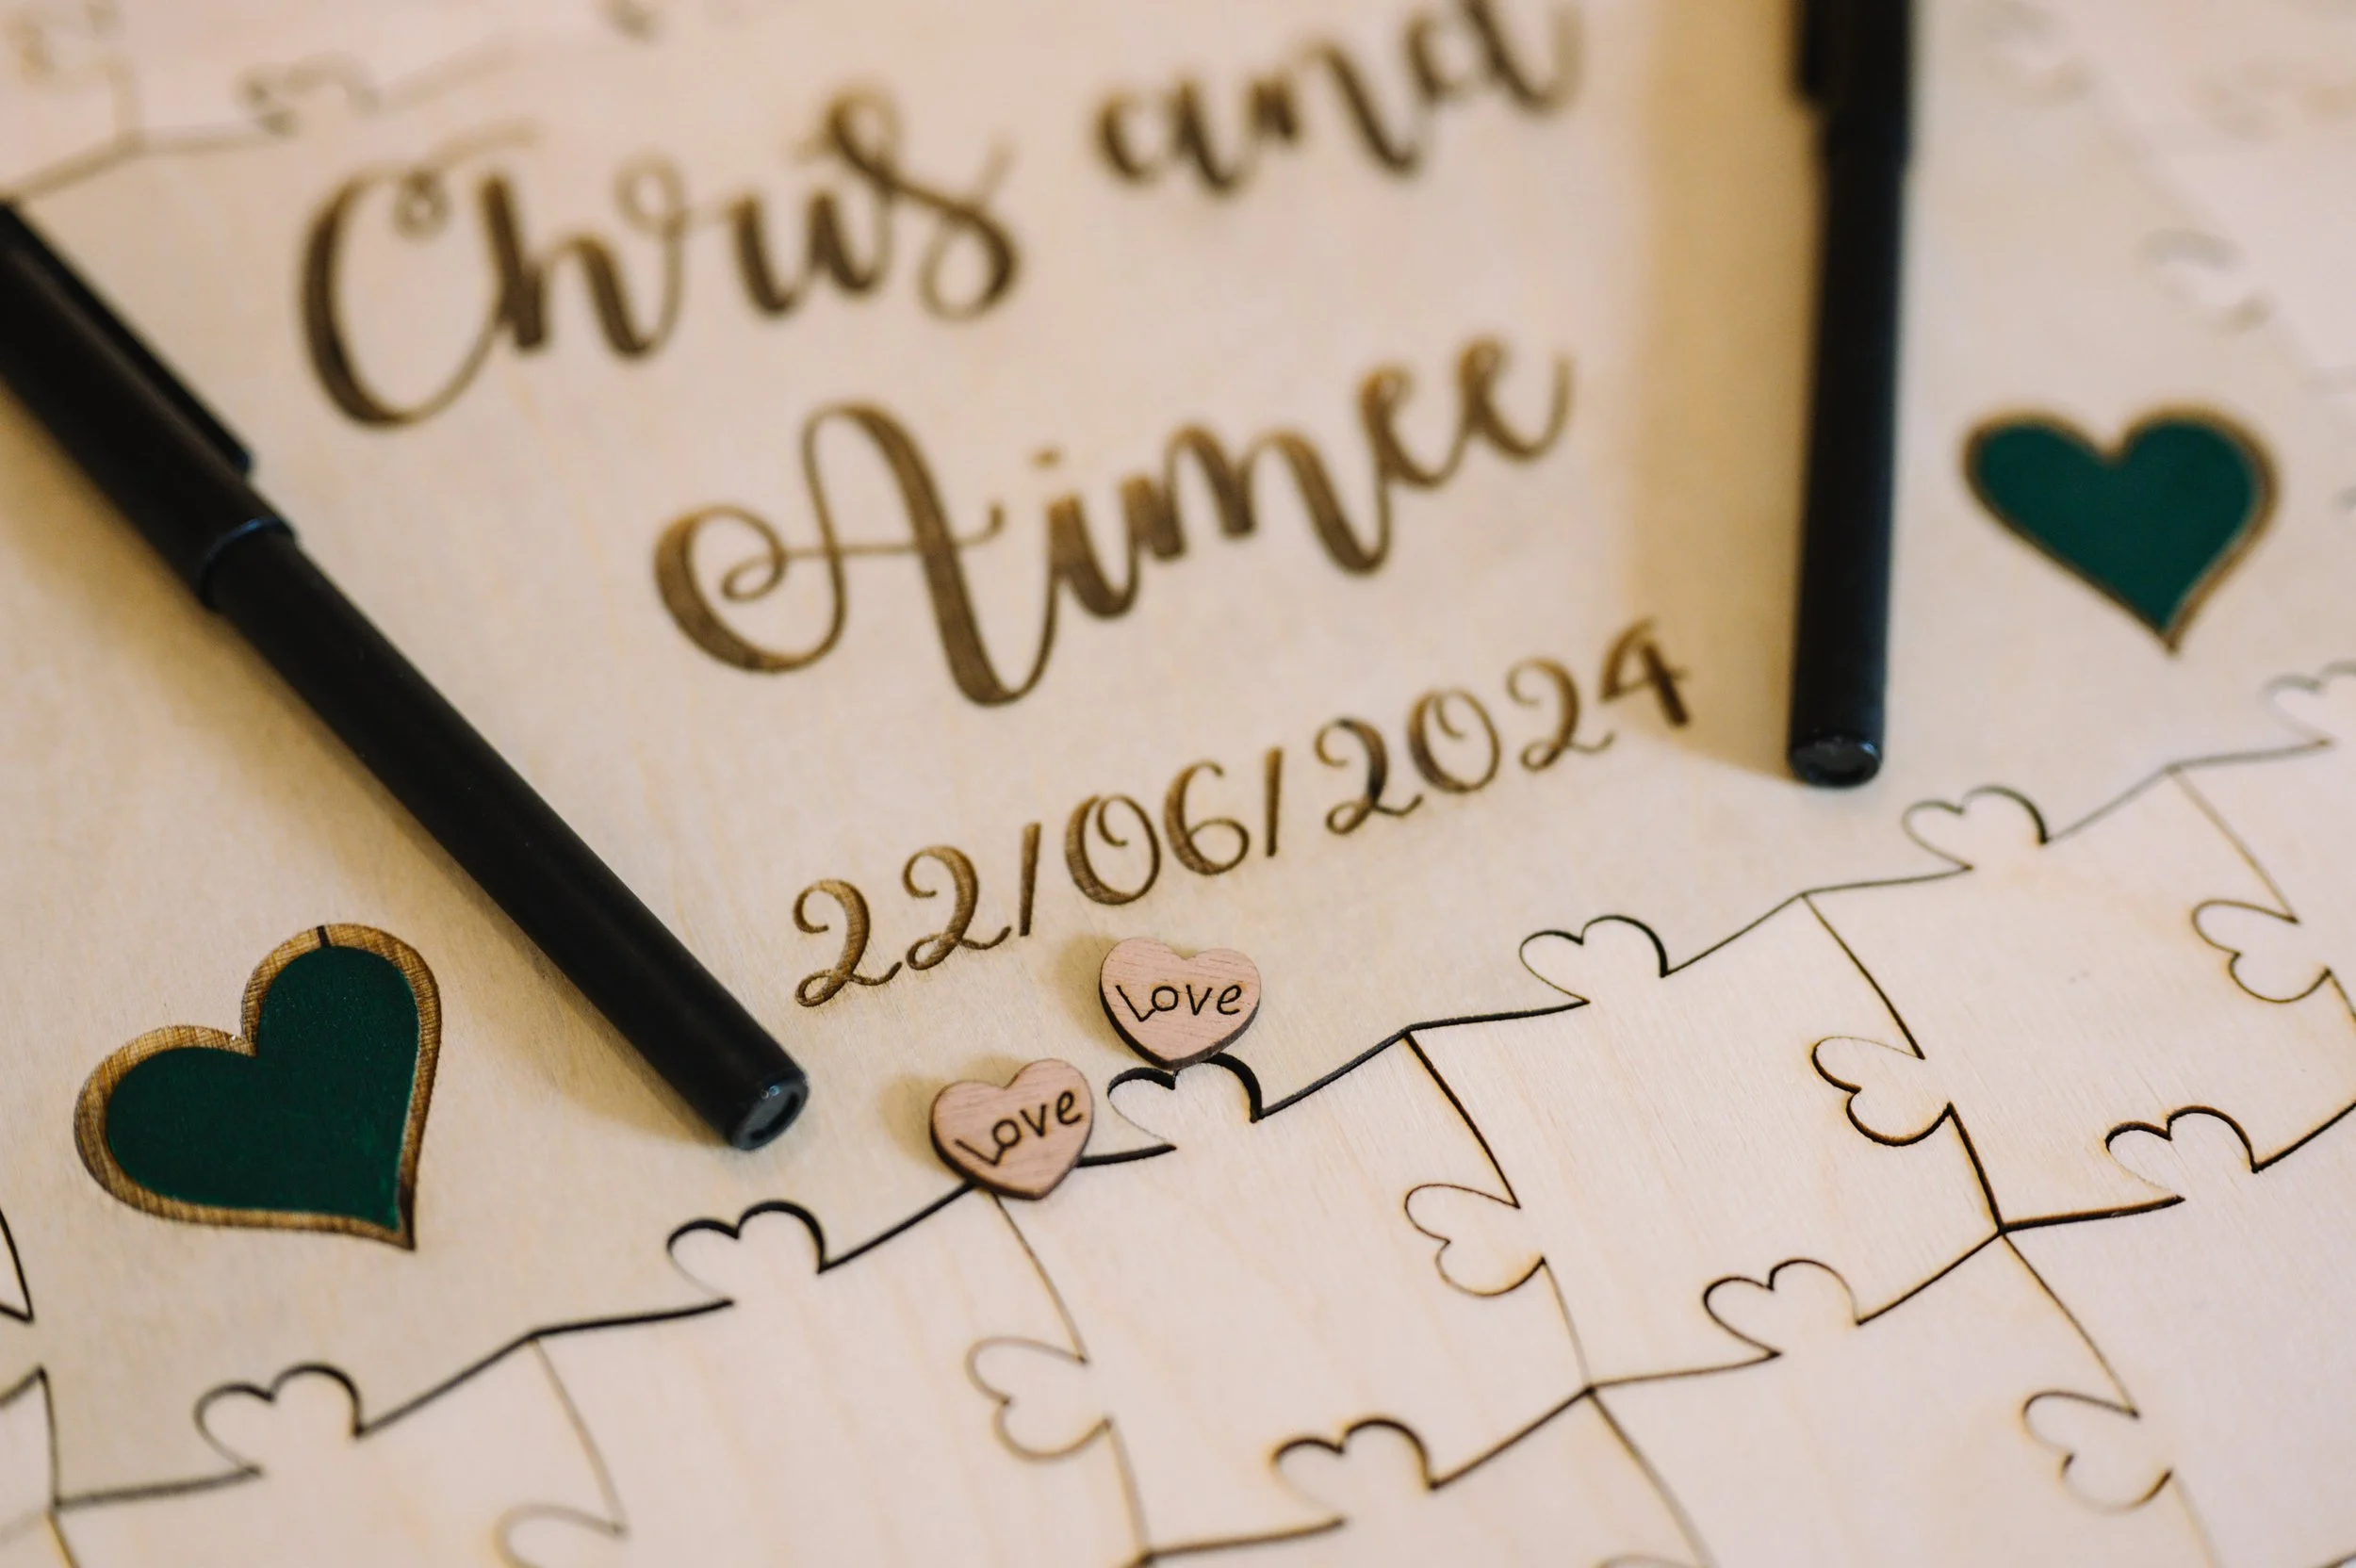 Chris and
Aimee
22/06/2024
Love
Love